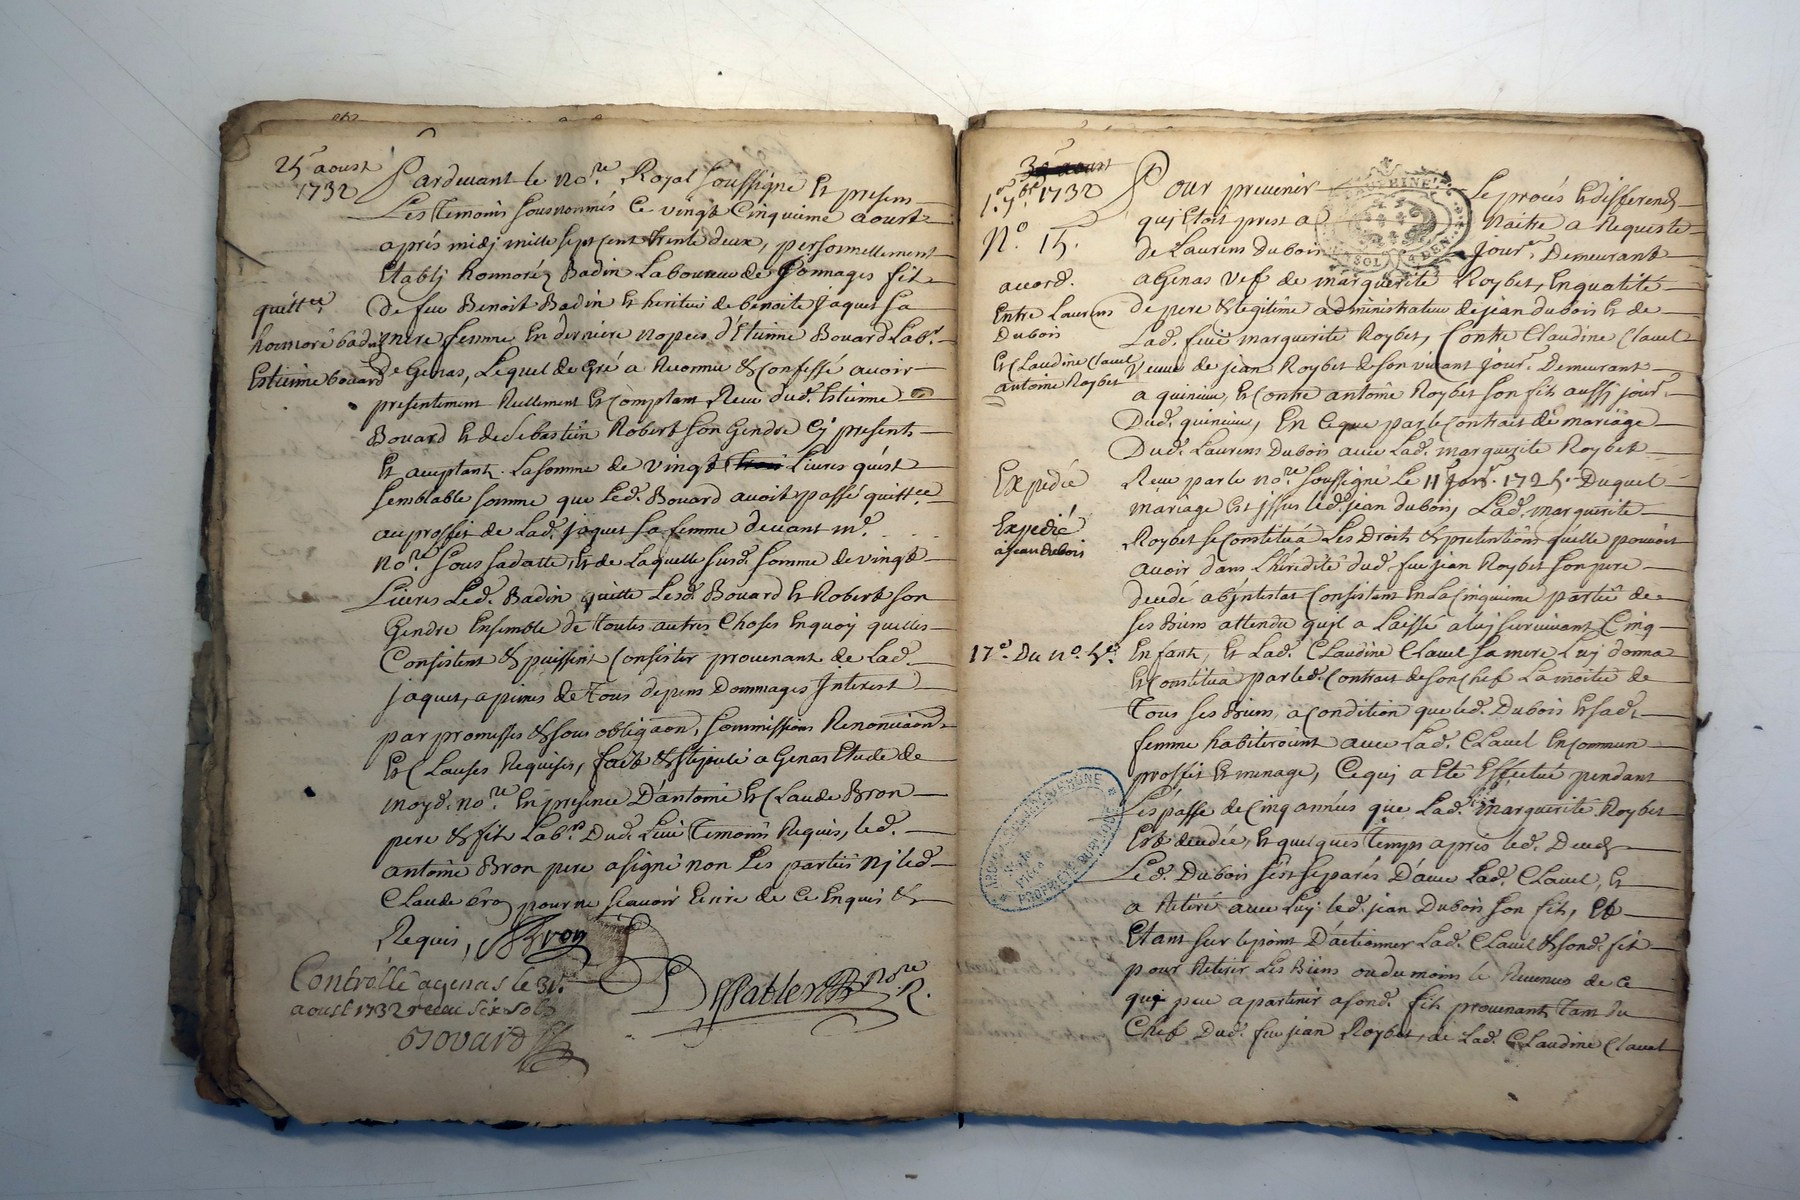 25 aoust
1732
Pardevant le no.re Royal soussigné Et presens
Les Temoins sousnommés Ce vingt Cinquieme aoust
aprés midj mille sept cent trente deux, personnellement
Etablj honnoré Badin Laboureur de Jonnages fils
De feu Benoit Badin Et heritier de benoite jaquet sa
mere femme En derniere nopces d'Etienne Bouard Lab.r
De Genas, Lequel de Gré a Reconnu & Confessé avoir
presentement Reellement Et Comptant Receu dud. Estienne
Bouard Et de Sebastien Robert son Gendre Cy presents
Et acceptants La somme de vingt Livres qu'est
semblable somme que Led. Bouard avoit passé quitt.ce
au proffit de Lad. jaquet sa femme devant m.e
no.re sous sa datte, Et de Laquelle susd. somme de vingt
Livres Led. Badin quitte Lesd. Bouard Et Robert son
Gendre Ensemble de toutes autres Choses Enquoy quelles
Consistent & puissent Consister provenant de Lad.
jaquet, a peines de Tous depens Dommages Interest
par promesses & sous obligaon, soummissions Renonciaons
Et Clauses Requises, fait & stipulé a Genas Etude de
moyd. no.re En presence D'antoine Et Claude Bron
pere & fils Lab.rs Dud. Lieu Temoins Requis, led.
antoine Bron pere a signé non Les parties nj led.
Claude bron pour ne scavoir Ecrire de Ce Enquis &
Requis,
Bron
quitt.ce
honnoré badin
Estienne bouard
Controlle a genas le 31.
aoust 1732 receu six sols
Bouard
no.re R.
30 aoust
1.er 7.bre 1732
N.o 15.
acord.
Entre Laurens
Dubois
Et Claudine Clavel
antoine Roybet
Expedié
Expedié
a jean dubois
17.e Du n.o 5.e
Pour prevenir Le procés Et differend
quj Etoit prest a Naitre a Requiste
de Laurens Dubois Jour.r Demeurant
a Genas vef de marguerite Roybet, En qualité
De pere & legitime administrateur de jean dubois Et de
Lad. feüe marguerite Roybet, Contre Claudine Clavel
Veuve de jean Roybet de son vivant jour.r Demeurant
a quincieu, Et Contre antoine Roybet son fils aussj jour.r
Dud. quincieu, En Ce que par le Contrait de mariage
Dud. Laurens Dubois avec Lad. marguerite Roybet
Receu par le no.re soussigné Le 11 1725. Duquel
mariage Est jssus led. jean dubois, Lad. marguerite
Roybet se Constitua Les Droits & pretentions quelle pouvoit
avoir dans L'hérédité dud. feu jean Roybet son pere
decedé abjntestat Consistant En La Cinquieme partie de
ses Biens attendu qu'jl a laissé a luj survivant Cinq
Enfants, Et Lad. Claudine Clavel sa mere Luj donna
Et Constitua par led. Contrait de son Chef La moitié de
Tous ses Biens, a condition que led. Dubois Et sad.
femme habiteroient avec Lad. Clavel En Commun
proffit Et menage, Ce quj a Eté Effectué pendant
L'espasse de Cinq années que Lad. marguerite Roybet
Est decedée, Et quelques Temps aprés led. Deces
Led. Dubois s'est separés D'avec Lad. Clavel, Et
a Retiré avec Luj led. jean Dubois son fils, Et
Etant sur le point D'actionner Lad. Clavel & sond. fils
pour Retirer Les Biens ou du moins le Revenus de Ce
quj peu apartenir a sond. fils provenant Tant du
Chef Dud. feu jean Roybet, de Lad. Claudine Clavel
DAUPHINÉ
PROPRIETE PUBLIQUE